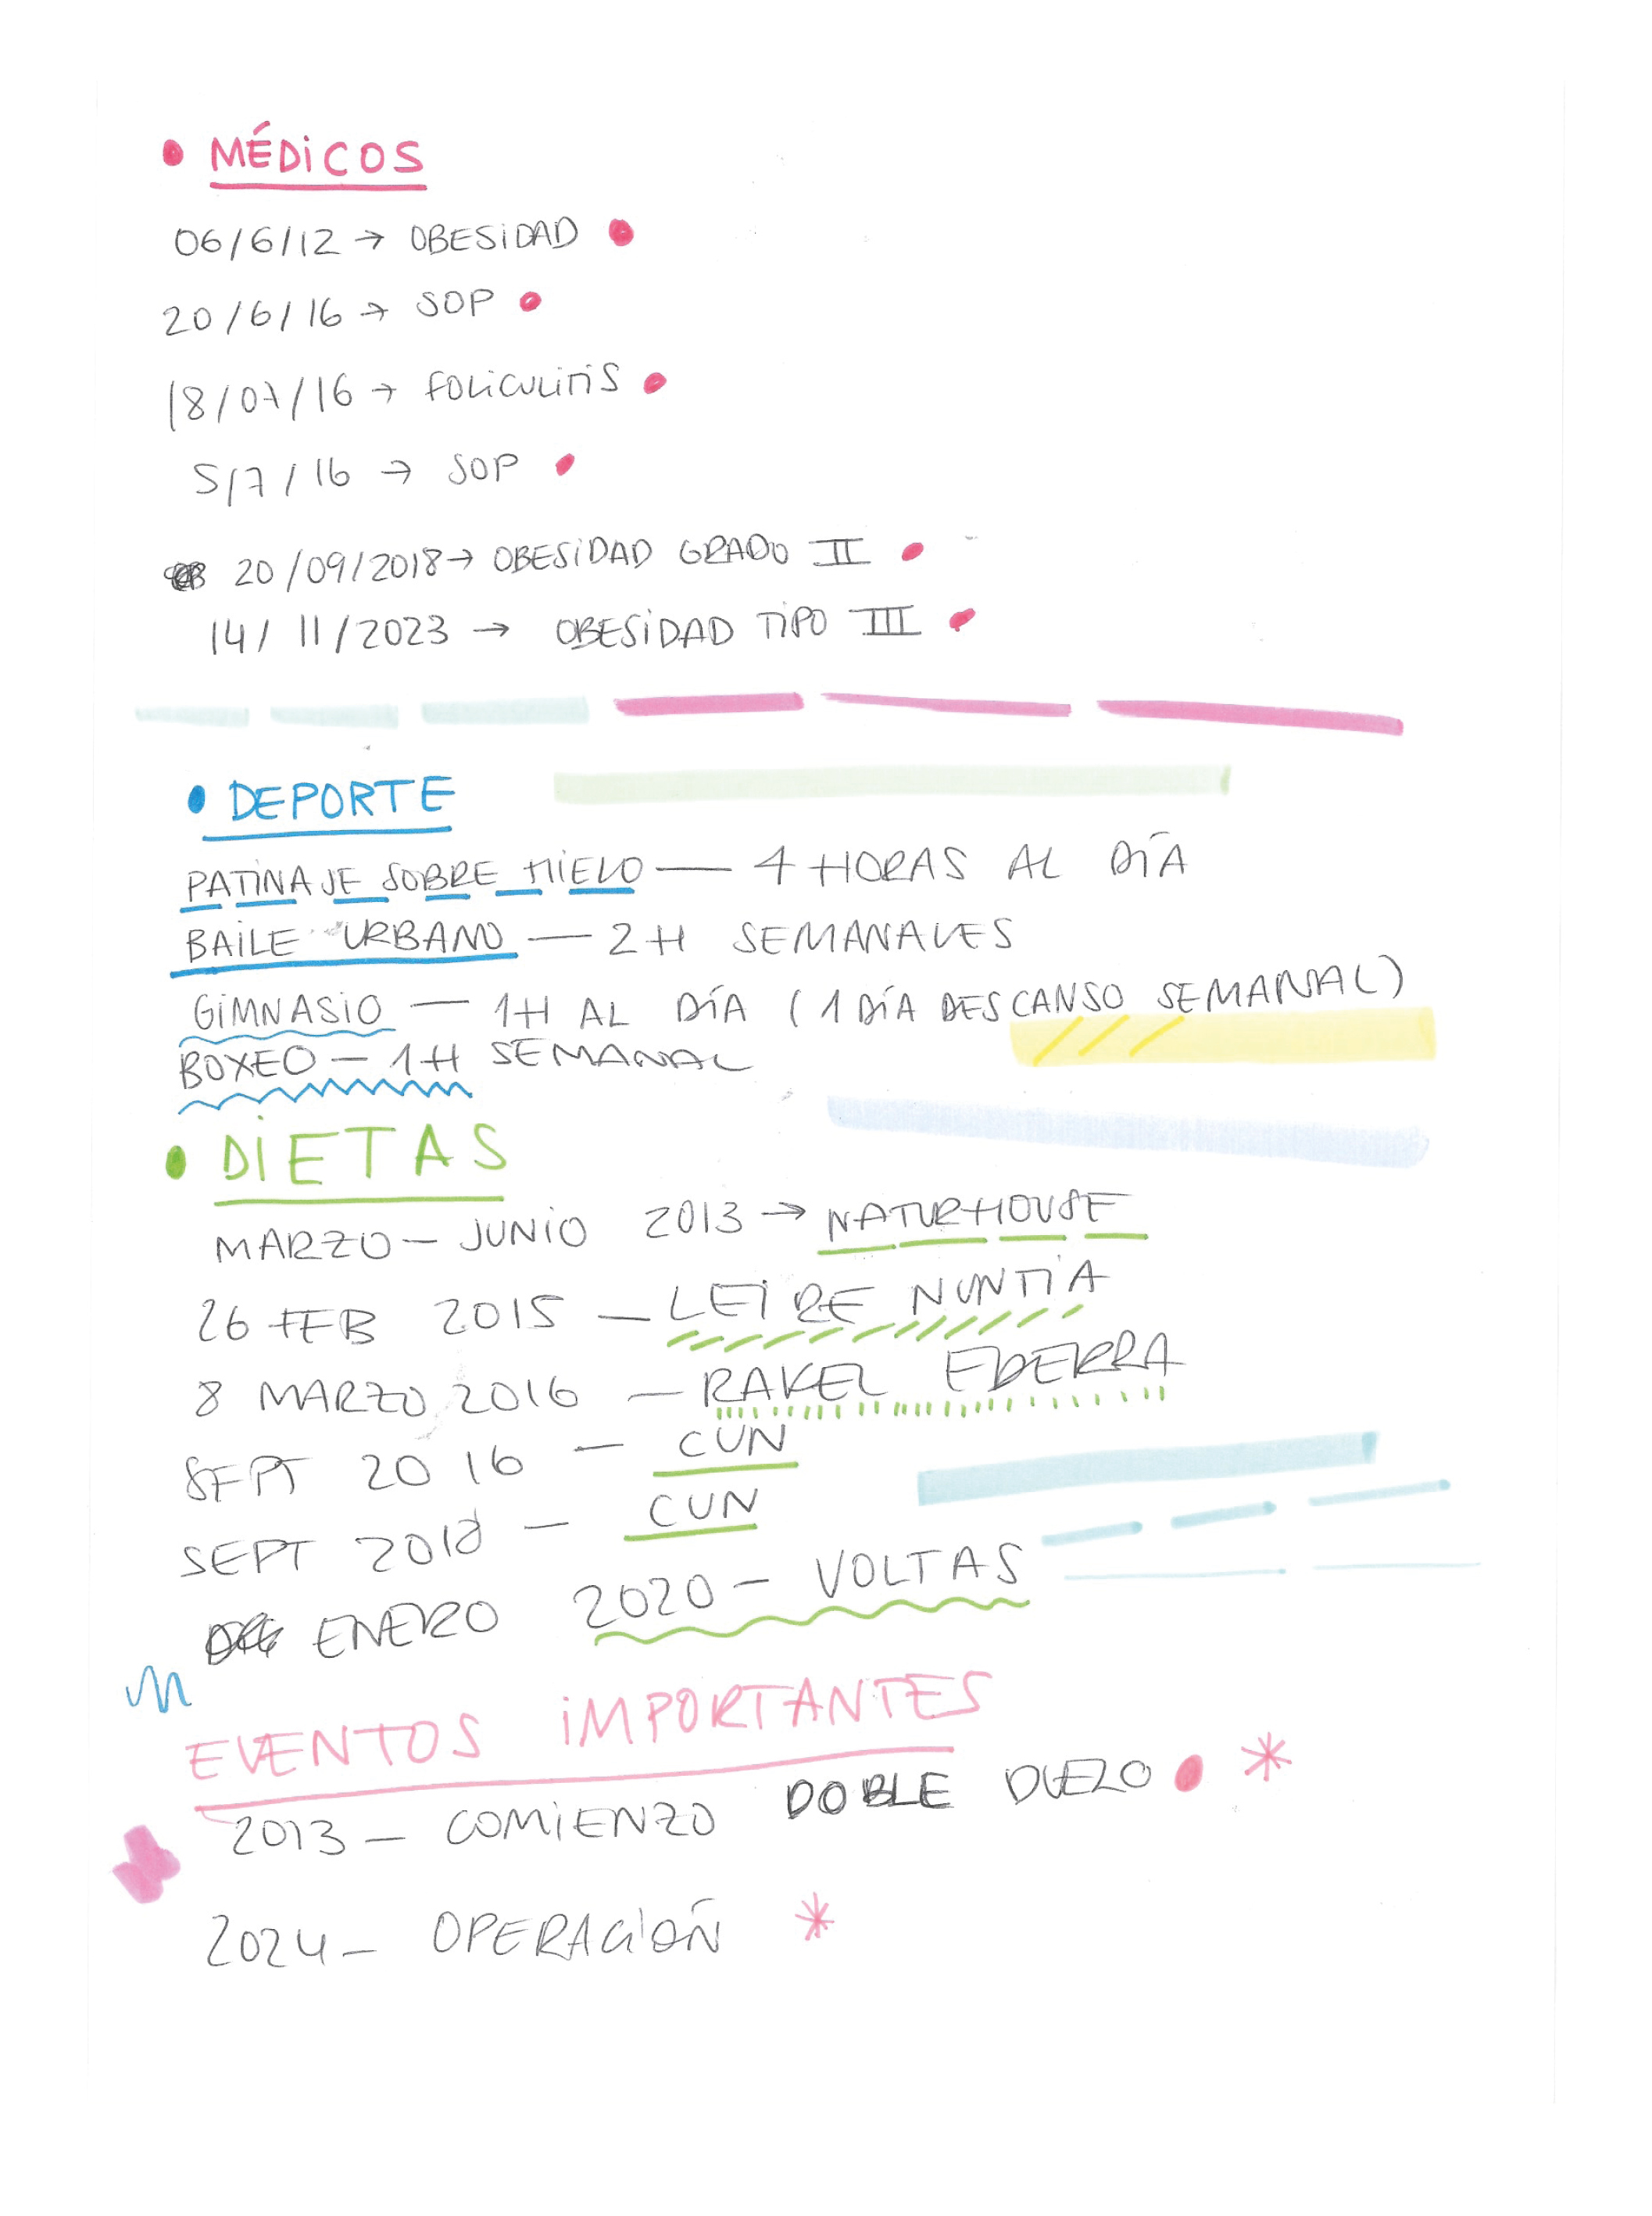 • MÉDICOS
06/6/12 → OBESIDAD
20/6/16 → SOP
18/07/16 → FOLICULITIS
5/7/16 → SOP
20/09/2018 → OBESIDAD GRADO II
14/11/2023 → OBESIDAD TIPO III
• DEPORTE
PATINAJE SOBRE HIELO — 4 HORAS AL DÍA
BAILE URBANO — 2H SEMANALES
GIMNASIO — 1H AL DÍA (1 DÍA DESCANSO SEMANAL)
BOXEO — 1H SEMANAL
• DIETAS
MARZO — JUNIO 2013 → NATURHOUSE
26 FEB 2015 — LEIRE NUNTIA
8 MARZO 2016 — RAKEL EDERRA
SEPT 2016 — CUN
SEPT 2018 — CUN
ENERO 2020 — VOLTAS
EVENTOS IMPORTANTES
2013 — COMIENZO DOBLE DUELO *
2024 — OPERACIÓN *